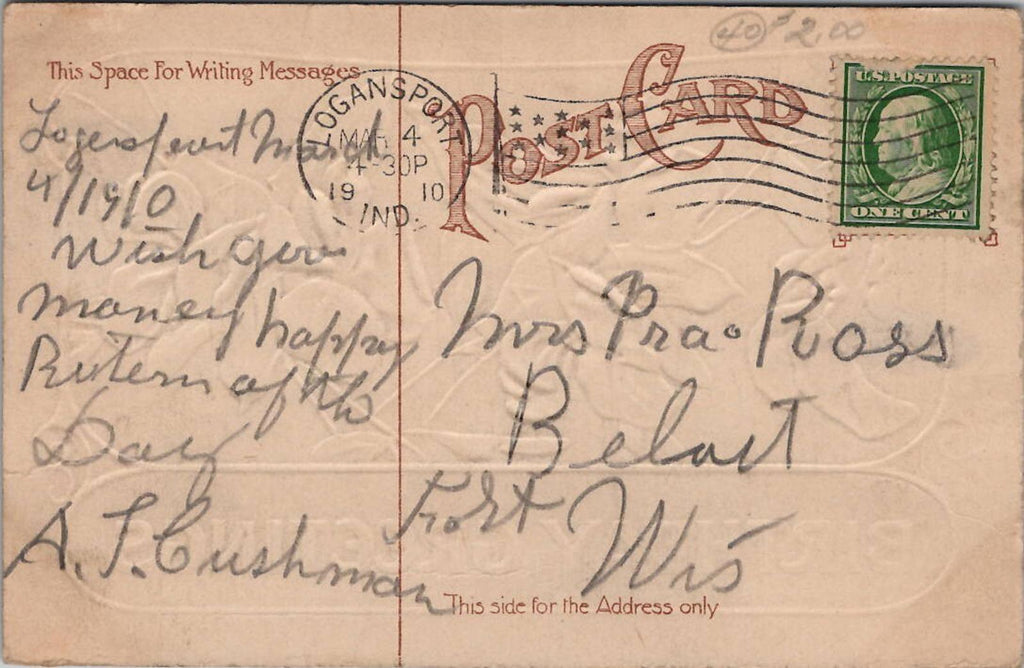 40 $2.00
This Space For Writing Messages
POST CARD
LOGANSPORT
MAR 4
4-30P
19 10
IND.
U.S. POSTAGE
ONE CENT
March
4/1910
Wish you
maney happy
Ritern of the
Day
A. T. Cushman
Mrs Pra. Ross
Beloit
Wis
This side for the Address only
BIRTHDAY GREETINGS